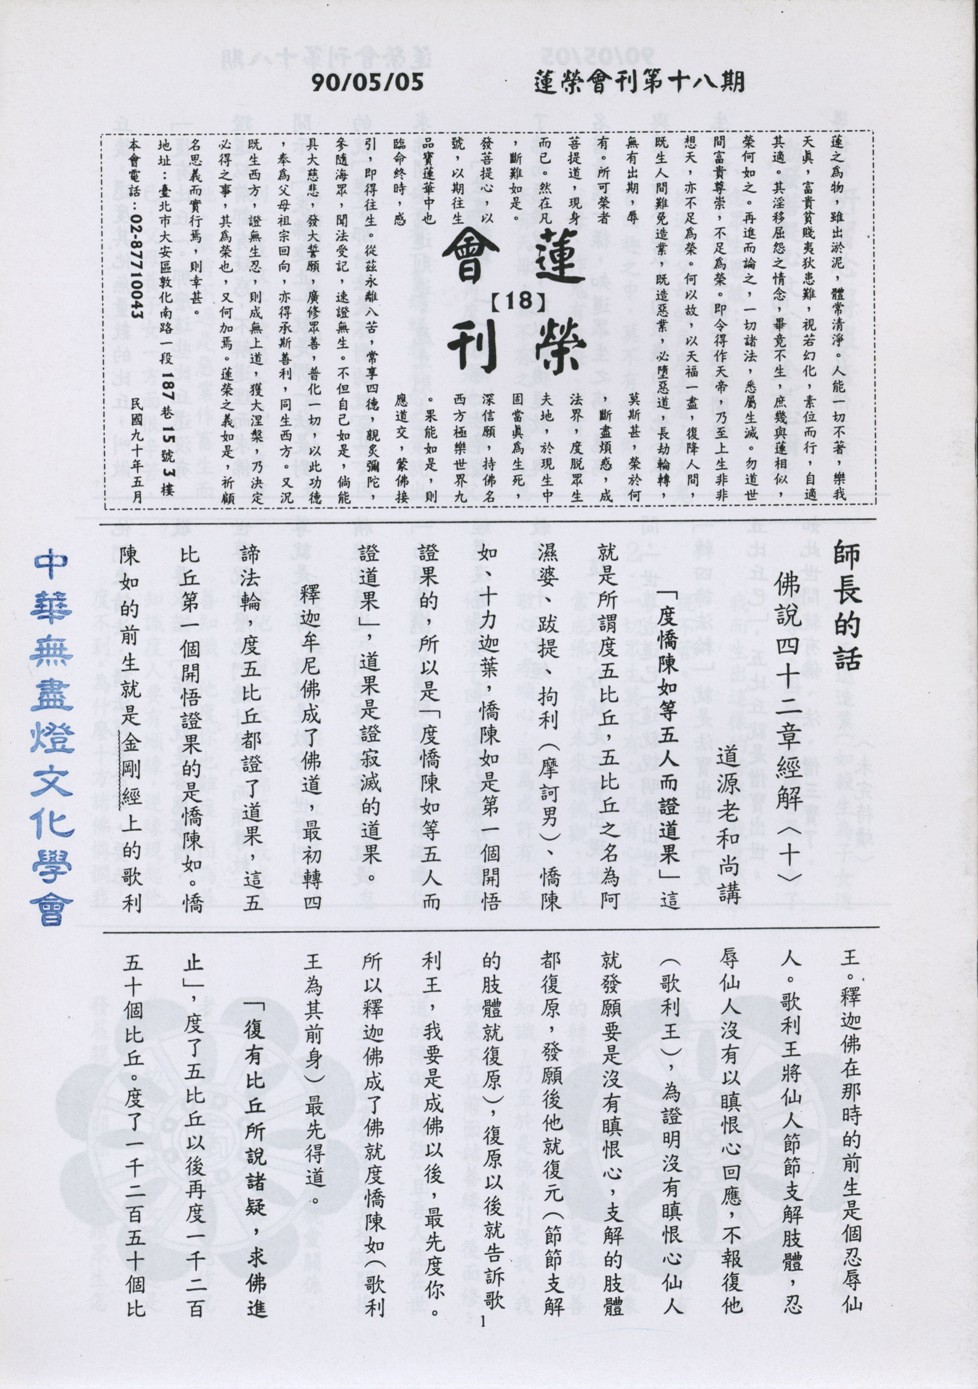 90/05/05 蓮榮會刊第十八期
蓮之為物，雖出淤泥，體常清淨。人能一切不著，樂我
天真，富貴貧賤夷狄患難，視若幻化，素位而行，自適
其適。其淫移屈怨之情念，畢竟不生，庶幾與蓮相似，
榮何如之。再進而論之，一切諸法，悉屬生滅。勿道世
間富貴尊崇，不足為榮。即令得作天帝，乃至上生非非
想天，亦不足為榮。何以故，以天福一盡，復降人間，
既生人間難免造業，既造惡業，必墮惡道，長劫輪轉，
無有出期，辱莫斯甚，榮於何
有。所可榮者，斷盡煩惱，成
菩提道，現身法界，度脫眾生
而已。然在凡夫地，於現生中
，斷難如是。固當真為生死，
發菩提心，以深信願，持佛名
號，以期往生西方極樂世界九
品寶蓮華中也。果能如是，則
臨命終時，感應道交，蒙佛接
引，即得往生。從茲永離八苦，常享四德，親炙彌陀，
參隨海眾，聞法受記，速證無生。不但自己如是，倘能
具大慈悲，發大誓願，廣修眾善，普化一切，以此功德
，奉為父母祖宗回向，亦得承斯善利，同生西方。又況
既生西方，證無生忍，則成無上道，獲大涅槃，乃決定
必得之事，其為榮也，又何加焉。蓮榮之義如是，祈顧
名思義而實行焉，則幸甚。
地址：臺北市大安區敦化南路一段187巷15號3樓
本會電話：02-87710043 民國九十年五月
蓮榮
會刊
【18】
師長的話
佛說四十二章經解〈十〉
道源老和尚講
「度憍陳如等五人而證道果」這
就是所謂度五比丘，五比丘之名為阿
濕婆、跋提、拘利（摩訶男）、憍陳
如、十力迦葉，憍陳如是第一個開悟
證果的，所以是「度憍陳如等五人而
證道果」，道果是證寂滅的道果。
釋迦牟尼佛成了佛道，最初轉四
諦法輪，度五比丘都證了道果，這五
比丘第一個開悟證果的是憍陳如。憍
陳如的前生就是金剛經上的歌利
王。釋迦佛在那時的前生是個忍辱仙
人。歌利王將仙人節節支解肢體，忍
辱仙人沒有以瞋恨心回應，不報復他
（歌利王），為證明沒有瞋恨心仙人
就發願要是沒有瞋恨心，支解的肢體
都復原，發願後他就復元（節節支解
的肢體就復原），復原以後就告訴歌
利王，我要是成佛以後，最先度你。
所以釋迦佛成了佛就度憍陳如（歌利
王為其前身）最先得道。
「復有比丘所說諸疑，求佛進
止」，度了五比丘以後再度一千二百
五十個比丘。度了一千二百五十個比
中華無盡燈文化學會
1